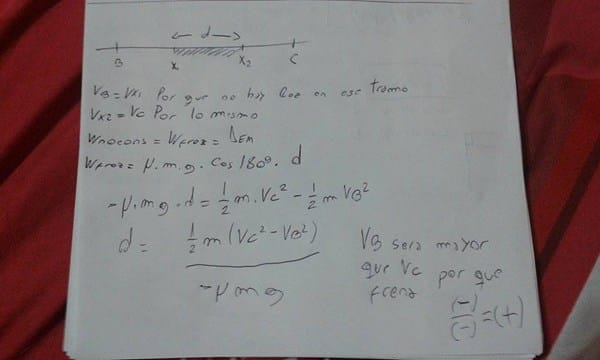 ← d →
B x x2 C
VB = Vx1 Por que no hay Roz en ese tramo
Vx2 = Vc Por lo mismo
Wnocons = WFroz = ΔEM
WFroz = μ.m.g. Cos 180º. d
-μ.mg.d = 1/2 m.Vc² - 1/2 m VB²
d = 1/2 m (Vc² - VB²) / -μmg
VB sera mayor
que Vc por que
frena
(-)/(-) = (+)